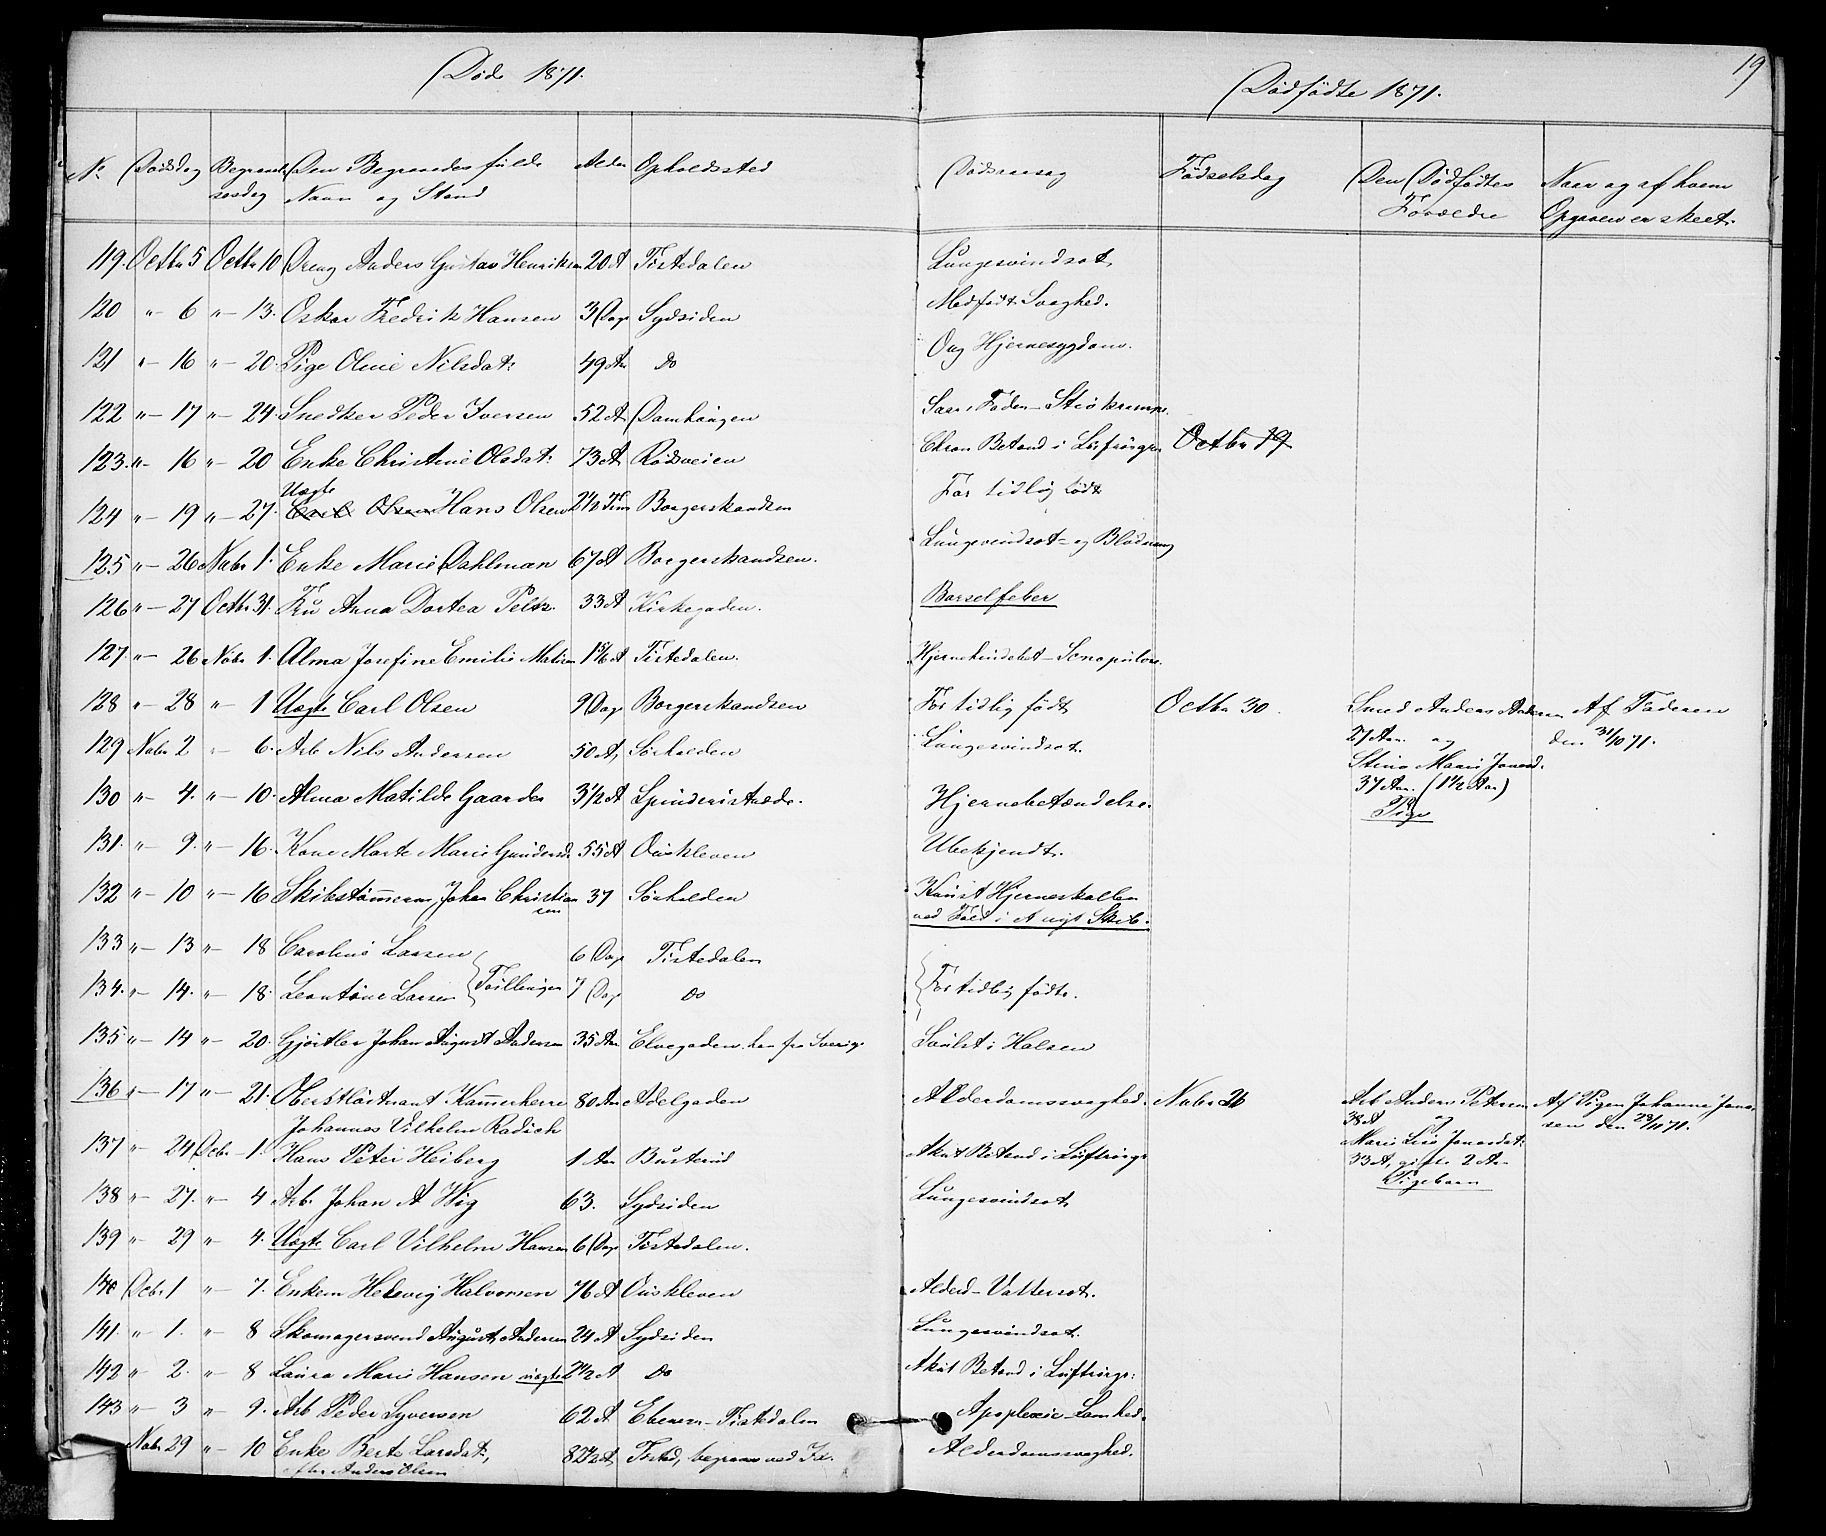 Døde 1871.
Dødfødte 1871.
19
No Dødsdag Begravelsesdag Den Begravedes fulde Navn og Stand Alder Opholdssted Dødsaarsag Fødselsdag Den Dødfødtes Forældre Naar og af hvem Opgaven er skeet.
119. Octbr 5 Octbr 10 Dreng Anders Gustav Henriksen 20 A Tistedalen Lungesvindsot
120 " 6 " 13. Oskar Fredrik Hansen 3 Dage Sydsiden Medfødt Svaghed.
121 " 16 " 20. Pige Oline Nilsdat: 49 Aar do Ong Hjernesygdom.
122 " 17 " 24. Snedker Peder Iversen 52 A Damhaugen
123. " 16 " 20 Enke Christine Olsdat: 73 A Rødsveien Chron Betænd i Luftrørgr Octbr 19
124 " 19 " 27. Uægte Carl Olsen Hans Olsen 2 1/2 Time Borgerskandsen For tidlig født
125 " 26 Novbr 1. Enke Marie Dahlman 67 A Borgerskandsen. Lungesvindsot og Blødning
126 " 27 Octbr 31. Fru Anna Dortea Peltz. 33 A Kirkegaden. Barselfeber
127. " 26 Novbr 1. Alma Josefine Emilie Madsen 1 5/6 A Tistedalen. Hjernehindebet
128 " 28 " 1 Uægte Carl Olsen 9 Dage Borgerskandsen For tidlig født Octbr 30. Smed Anders Andersen Af Faderen
129 Novbr 2 " 6. Arb Nils Andersen 50 A Sørhalden Lungesvindsot. 27 Aar. og den 31/10 71.
Stine Marie Jonasd.
130 " 4. " 10. Alma Matilde Gaarder 3 1/2 A Spinderistræde. Hjernebetændelse. 37 Aar. (1 1/2 Aar)
Pige
131. " 9. " 16. Kone Marte Marie Gundersd 55 A Ouskleven Ubekjendt.
132 " 10 " 16 Skibstømmerm. Johan Christiansen 37 Sørhalden Knust Hjerneskallen
ved Fald i et nyt Skib.
133 " 13 " 18 Caroline Larsen 6 Dage Tistedalen
134. " 14. " 18. Leontine Larsen Tvillinger 7 Dage do For tidlig fødte.
135 " 14 " 20. Gjørtler Johan August Andersen 35 Aar Elvegaden. kom fra Sverig. Svulst i Halsen
136 " 17 " 21. Oberstløitnant Kammerherre 80 Aar Adelgaden Alderdomssvaghed. Novbr 26 Arb Anders Petersen Af Pigen Johanne Jonassen den 28/11 71.
Johannes Vilhelm Radich 38 A og
137 " 24 Dcbr 1. Hans Peter Heiberg 1 Aar Busterud Akut Betænd i Luftrørgr Marie Lise Jonasdat.
33 A, gifte 2 Aar
138 " 27. " 4 Arb. Johan A Wig 63. Sydsiden Lungesvindsot Pigebarn
139 " 29 " 4. Uægte Carl Vilhelm Hansen 6 Dage Tistedalen.
140 Dcbr 1 " 7. Enkem Helsvig Halvorsen 76 A Ouskleven Alderd Vattersot.
141. " 1. " 8 Skomagersvend August Andersen 24 A Sydsiden Lungesvindsot.
142 " 2. " 8 Laura Marie Hansen uægte 2 1/2 A do Akut Betænd i Luftrørgr:
143 " 3 " 9. Arb Peder Syversen 62 A Tistedalen Apoplexie Lamhed.
Novbr 29 " 10 Enke Berte Larsdat: 82 1/2 A Tisted, begraves ved Alderdomssvaghed.
efter Anders Olsen